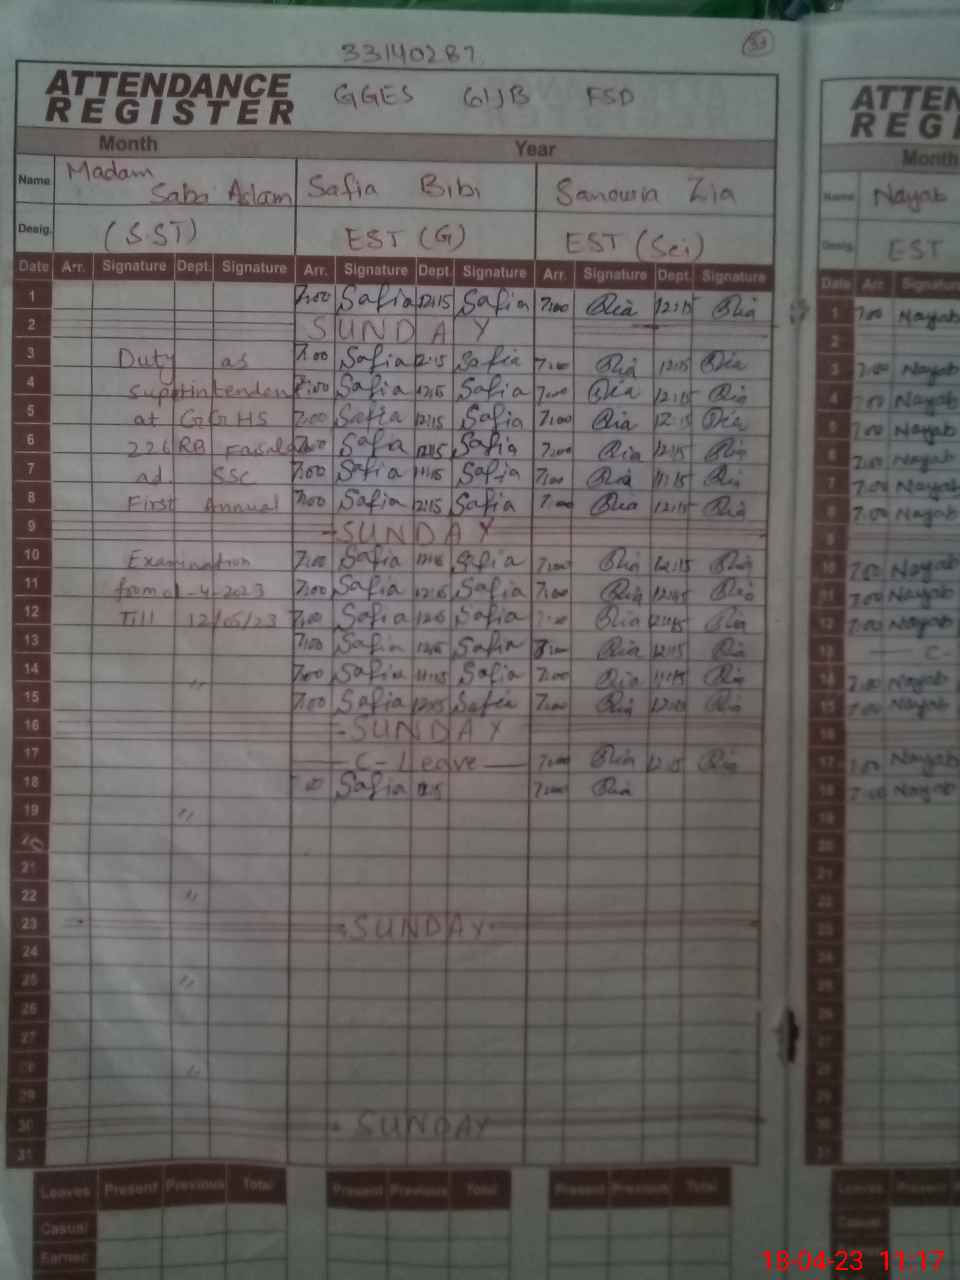 33140287
ATTENDANCE REGISTER GGES 61JB FSD
Month Year
Name Madam Saba Aslam Safia Bibi Sanowia Zia
Desig. (S.ST) EST (G) EST (Sci)
Date Arr. Signature Dept. Signature Arr. Signature Dept. Signature Arr. Signature Dept. Signature
1 7:00 Safia 12:15 Safia 7:00 12:15
2 SUNDAY
3 Duty as 7:00 Safia 12:15 Safia 7:00 12:15
4 Suprtintenden 7:00 Safia 12:15 Safia 7:00 12:15
5 at GGHS 7:00 Safia 12:15 Safia 7:00 12:15
6 226 RB Faisalab 7:00 Safia 12:15 Safia 7:00 12:15
7 ad SSC 7:00 Safia 11:15 Safia 7:00 11:15
8 First Annual 7:00 Safia 12:15 Safia 7:00 12:15
9 -SUNDAY
10 Examination 7:00 Safia Safia 7:00 12:15
11 from 01-4-2023 7:00 Safia 12:15 Safia 7:00 12:15
12 Till 12/05/23 7:00 Safia 12:15 Safia 7:00 12:15
13 7:00 Safia 12:15 Safia 7:00 12:15
14 " 7:00 Safia 11:15 Safia 7:00 11:15
15 7:00 Safia 12:15 Safia 7:00 12:15
16 -SUNDAY
17 C-Leave 7:00 12:15
18 Safia 12:15 7:00
19 "
20
21
22 "
23 SUNDAY
24
25 "
26
27
28 "
29
30 SUNDAY
31
Leaves Present Previous Total Present Previous Total Present Previous Total
Casual
Earned
ATTEN
REGI
Month
Name Nayab
Desig. EST
Date Arr Signature
1 7:00 Nayab
2
3 7:00 Nayab
4 7:00 Nayab
5 7:00 Nayab
6 7:00 Nayab
7 7:00 Nayab
8 7:00 Nayab
9
10 7:00 Nayab
11 7:00 Nayab
12 7:00 Nayab
13 C-
14 7:00 Nayab
15 7:00 Nayab
16
17 7:00 Nayab
18 7:00 Nayab
19
20
21
22
23
24
25
26
27
28
29
30
31
Leaves Present
Casual
Earned
18-04-23 11:17